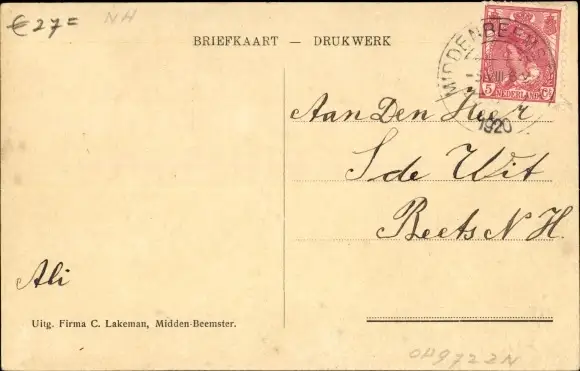 € 27 = NH
BRIEFKAART — DRUKWERK
MIDDENBEEMS
5 NEDERLAND Ct
1920
Aan Den Heer
S de Wit
Beets N H.
Ali
Uitg. Firma C. Lakeman, Midden-Beemster.